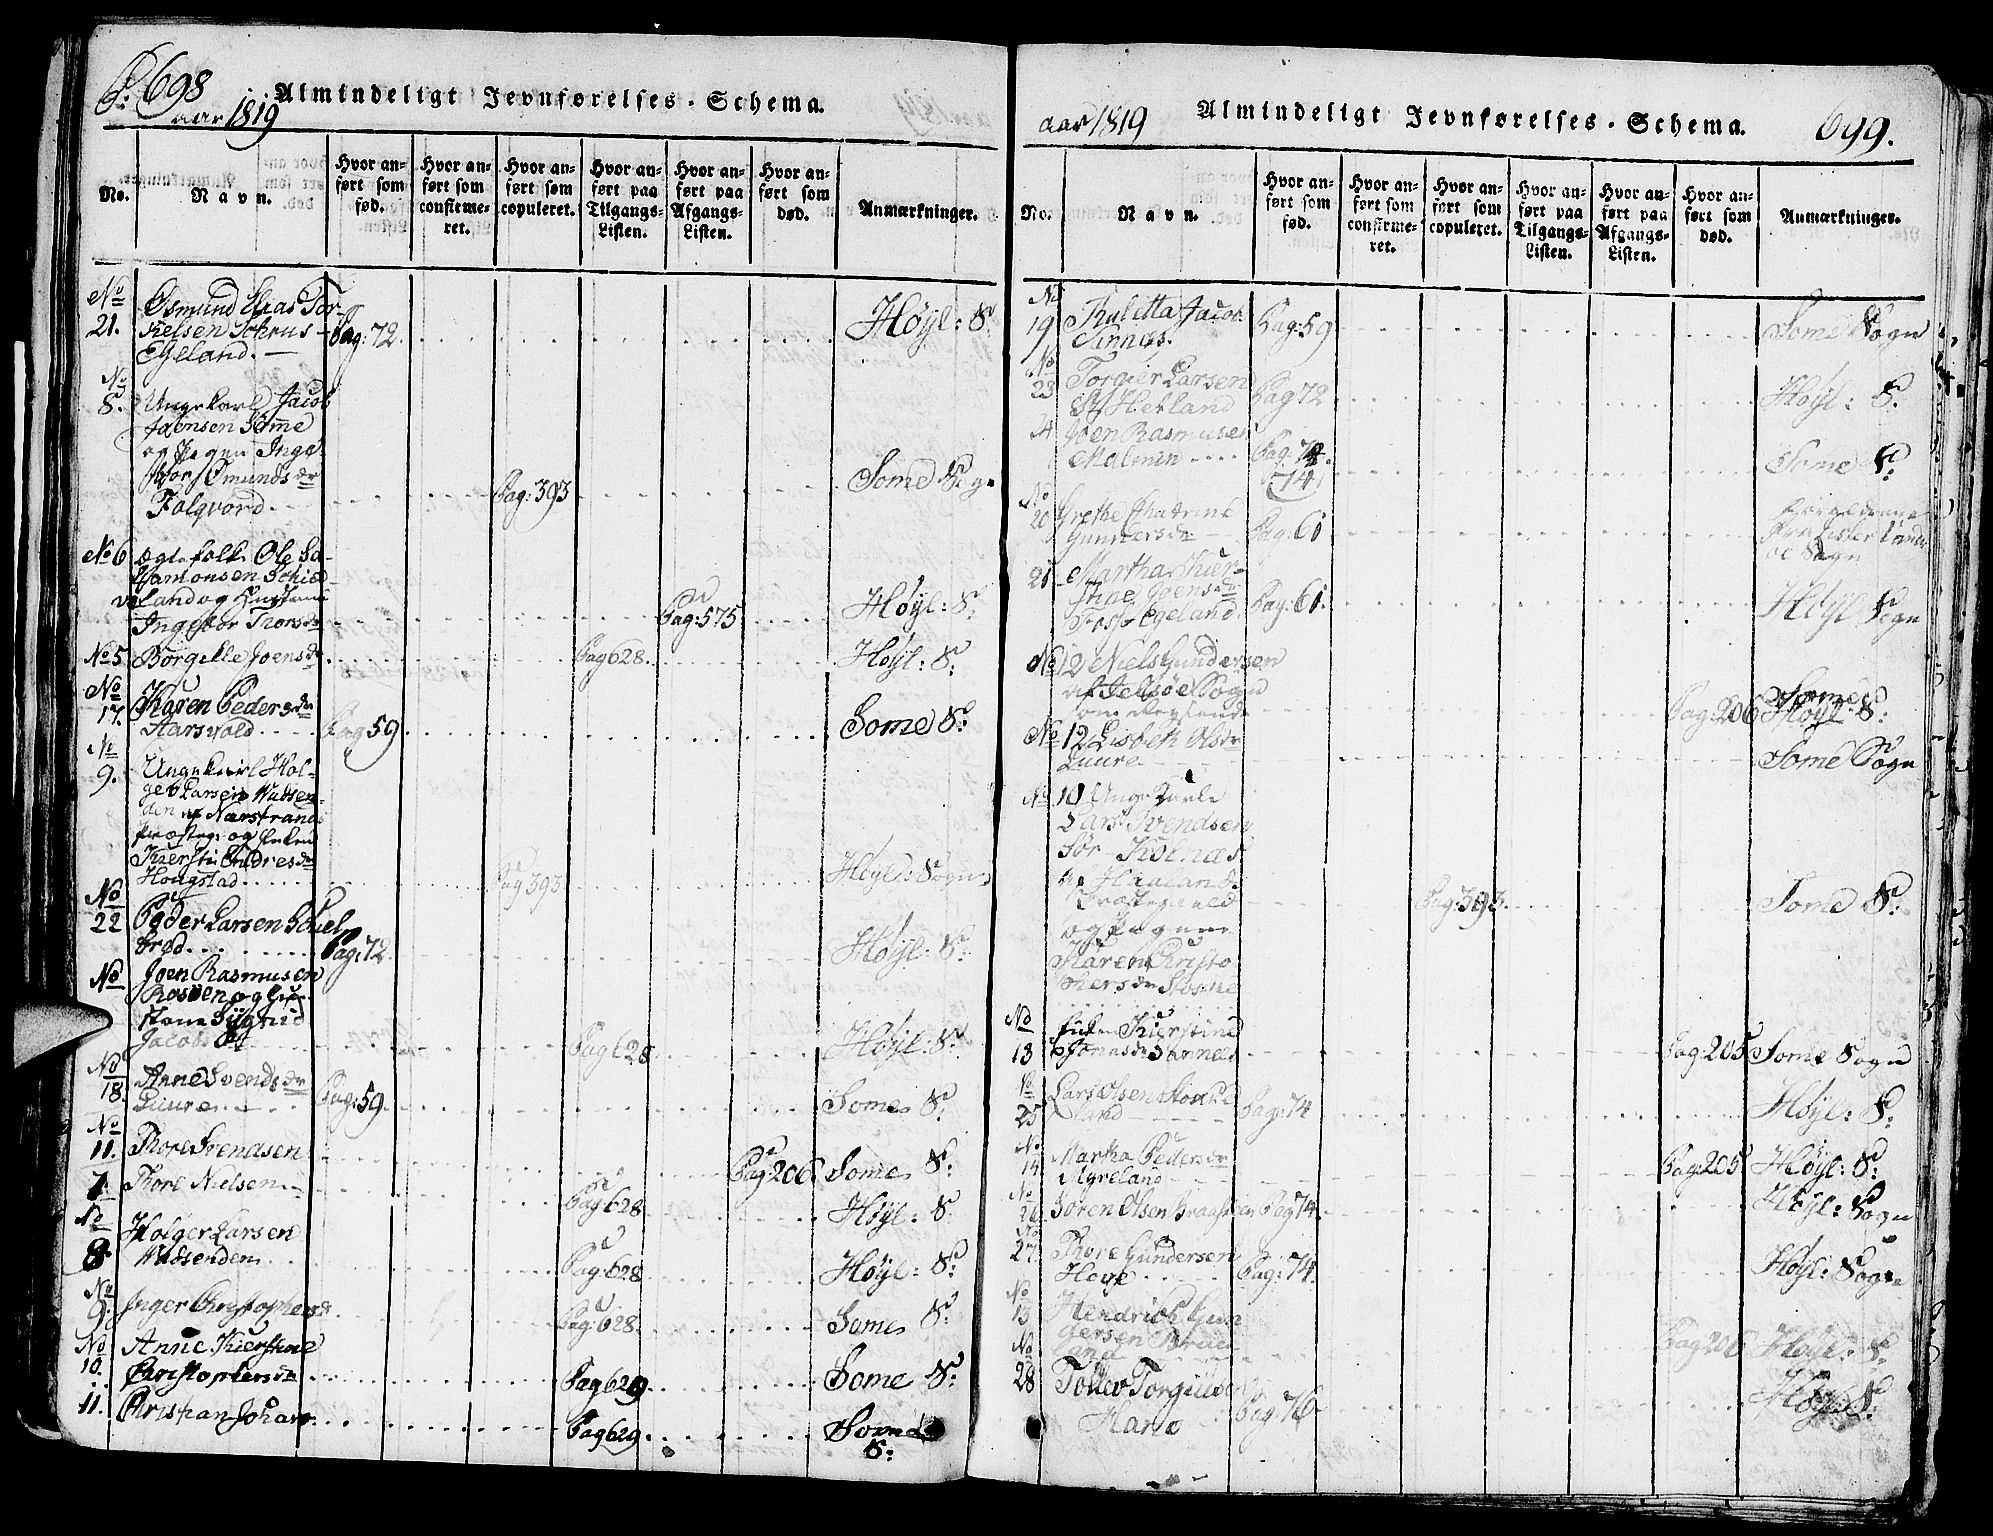 P: 698
Almindeligt Jevnførelses-Schema.
aar 1819
No.
Navn.
Hvor anført som fød.
Hvor anført som confirmeret.
Hvor anført som copuleret.
Hvor anført paa Tilgangs-Listen.
Hvor anført paa Afgangs-Listen.
Hvor anført som død.
Anmærkninger.
No 21. Osmund Elias Tor-
kelsen
Egeland. Pag: 72. Høyl: S:
No 8. Ungekarl Jacob
Joensen Sømme
og Pigen Inge-
bor Omunds dr
Folqvord. Pag: 393 Some Sogn
No 6 Ægtefolk Ole Sa-
land og
Ingebor Thors dr Pag: 575 Høyl: S:
No 5 Borgille Joens dr Pag 628. Høyl: S:
No 17. Karen Peders dr
Aarsvold Pag 59 Some S:
No 9. Ungekarl Hol-
ger Larsen Wadsen-
den af Nærstrands
Præsteg: og Enken
Kiersti Endres dr
Hougstad Pag 393 Høyl: Sogn
No 22 Peder Larsen Skiel-
bred Pag: 72 Høyl: S:
No Joen Rasmusen
Jacobs dr Pag 628 Høyl: S:
No 18. Anne Svends dr
Luura Pag: 59. Some S:
No 11. Thore Svendsen Pag: 206 Some S:
7. Thore Nielsen Pag 628 Høyl: S:
No 8. Holger Larsen
Wadsenden Pag: 628 Høyl: S:
No 9. Inger Christophersdr Pag: 628. Some S:
No 10. Anne Kierstine
Christophersdr Pag 629 Some S:
11. Christian Johan Pag 629. Some
S:
aar 1819
Almindeligt Jevnførelses-Schema.
699.
No.
Navn.
Hvor anført som fød.
Hvor anført som confirmeret.
Hvor anført som copuleret.
Hvor anført paa Tilgangs-Listen.
Hvor anført paa Afgangs-Listen.
Hvor anført som død.
Anmærkninger.
No 19 Ruletta Jacob
Sinnes. Pag: 59 Some Sogn
No 23 Torgier Larsen
St. Hetland Pag 72 Høyl: S:
Joen Rasmusen
Malenin Pag. 74. Some S:
(74)
No 20 Grethe Chatrine
Gunners dr Pag. 61
Sogn
21 Martha Kier-
stine Joens dr
Foss Egeland. Pag: 61. Høyl Sogn
No 12 Niels Gundersen
af Jelsøe Sogn Pag: 206 Høyl: S:
No 12 Lisbeth Ols dr
Luure Some Sogn
No 10 Unge Karle
Lars Svendsen
Sør Kolnæs
af Haaland
Præstegield Pag: 393. Some S:
og Pigen
Karen Christo-
phers dr
No 13 Enken Kierstine
Jonas dr Sannes Pag: 205 Some Sogn
No 25 Lars Olsen
land Pag: 74 Høyl: S:
No 14 Martha Peders dr
Myreland Pag: 205 Høyl: S:
No 26 Søren Olsen Braasteen Pag 74. Høyl: Sogn
No 27. Thore Gundersen
Høye Pag: 74. Høyl: Sogn
No 13 Hendrich Gun-
dersen
land Pag 206 Høyl: S:
No 28 Tollev Torgiilsen
Hana Pag: 76 Høyl S: